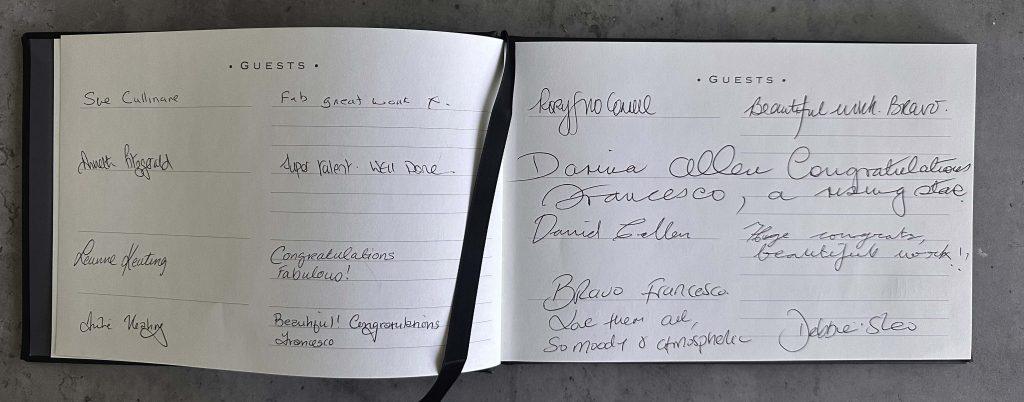 • GUESTS •
Sue Cullinane
Fab great work X.
Annette Fitzgerald
Super talent. Well Done.
Leanne Keating
Congratulations
Fabulous!
Julie Keating
Beautiful! Congratulations
Francesco
• GUESTS •
Rory
Beautiful work. Bravo.
Darina Allen Congratulations
Francesco, a rising star
David
Huge congrats,
beautiful work!!
Bravo Francesco
Love them all,
So moody & atmospheric
Debbie